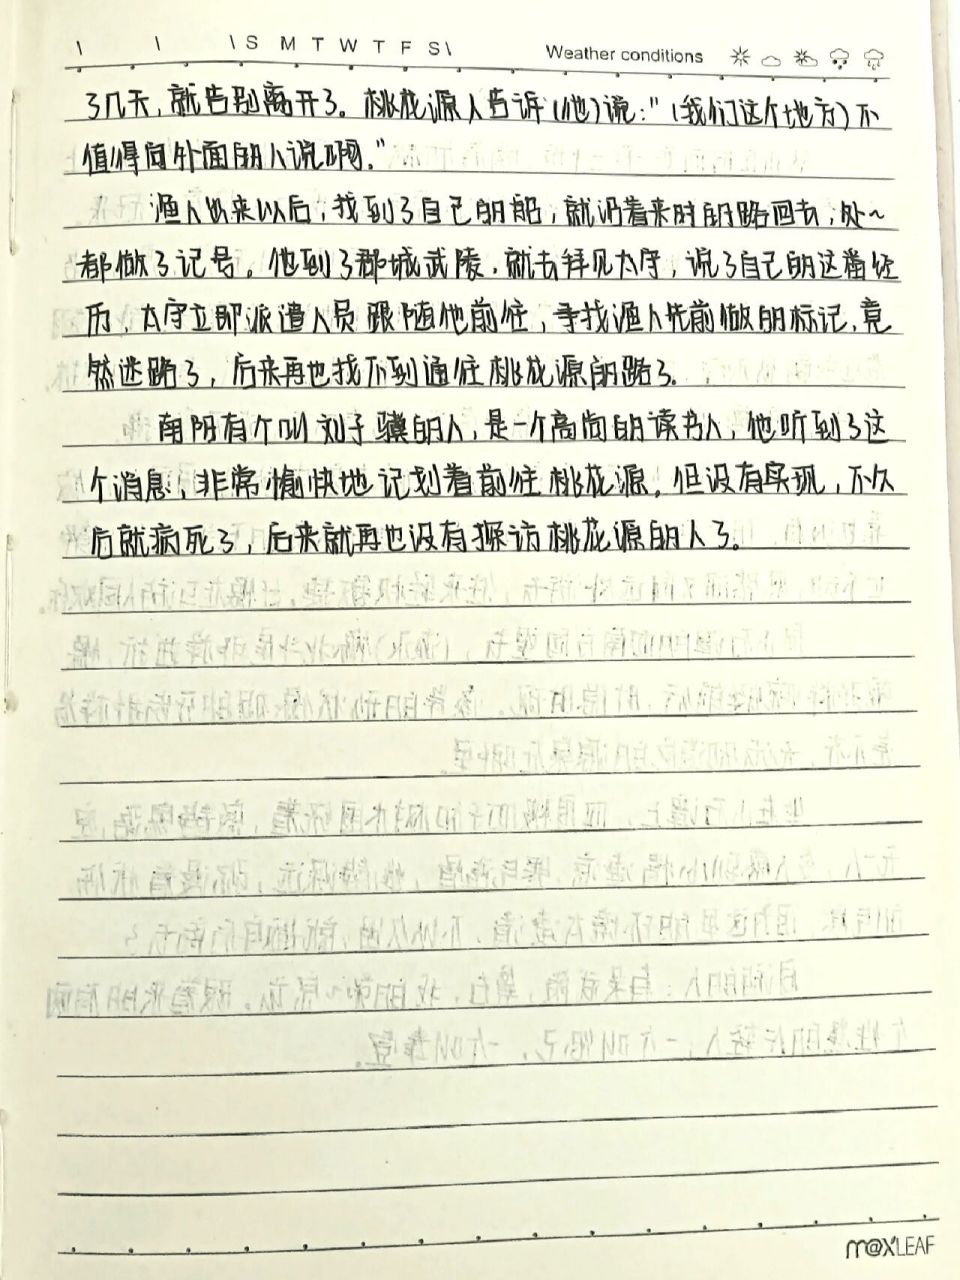 \ \ \ S M T W T F S \ Weather conditions
了几天，就告别离开了。桃花源人告诉(他)说："(我们这个地方)不
值得向外面的人说啊。"
渔人出来以后，找到了自己的船，就沿着来时的路回去，处~
都做了记号。他到了郡城武陵，就去拜见太守，说了自己的这番经
历，太守立即派遣人员跟随他前往，寻找渔人先前做的标记，竟
然迷路了，后来再也找不到通往桃花源的路了。
南阳有个叫刘子骥的人，是一个高尚的读书人，他听到了这
个消息，非常愉快地记划着前往桃花源。但没有实现，不久
后就病死了，后来就再也没有探访桃花源的人了。
m@x'LEAF